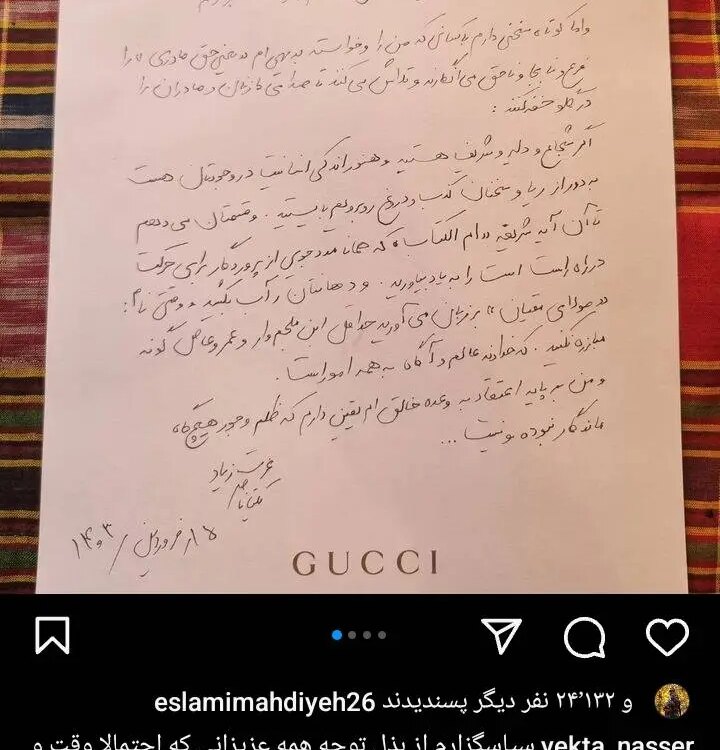 و اما کوتاه سخنی دارم با کسانی که من را و خواسته به من ام
فرع و نابجا و ناحق می انگارند و تلاش می کنند تا صدای زنان و مادران را
در گلو خفه کنند :
اگر شجاع و دلیر و شریف هستید و هنوز اندکی انسانیت در وجودتان هست
به دور از ریا و سخنان کذب و دروغ روبرویم بایستید . و قسمتان می دهم
تا آن آیه شریفه « ام الکتاب » که همانا مدد جویی از پروردگار برای حرکت
در راه راست است را به یاد بیاورید . و دهانتان را آب بکشید و وقتی نام :
« مولای متقیان » بر زبان می آورید حداقل ابن ملجم وار و عمروعاص گونه
مبارزه نکنید . که خداوند عالم و آگاه به همه امور است .
و من بر پایه اعتقاد به وعده خالق ام یقین دارم که ظلم و جور هیچگاه
ماندگار نبوده و نیست ...
عزت زیاد
۱۴۰۳ / فروردین
GUCCI
و ۲۴٬۱۳۲ نفر دیگر پسندیدند eslamimahdiyeh26
yekta_nasser سپاسگزارم از بذل توجه همه عزیزانی که احتمالا وقت و